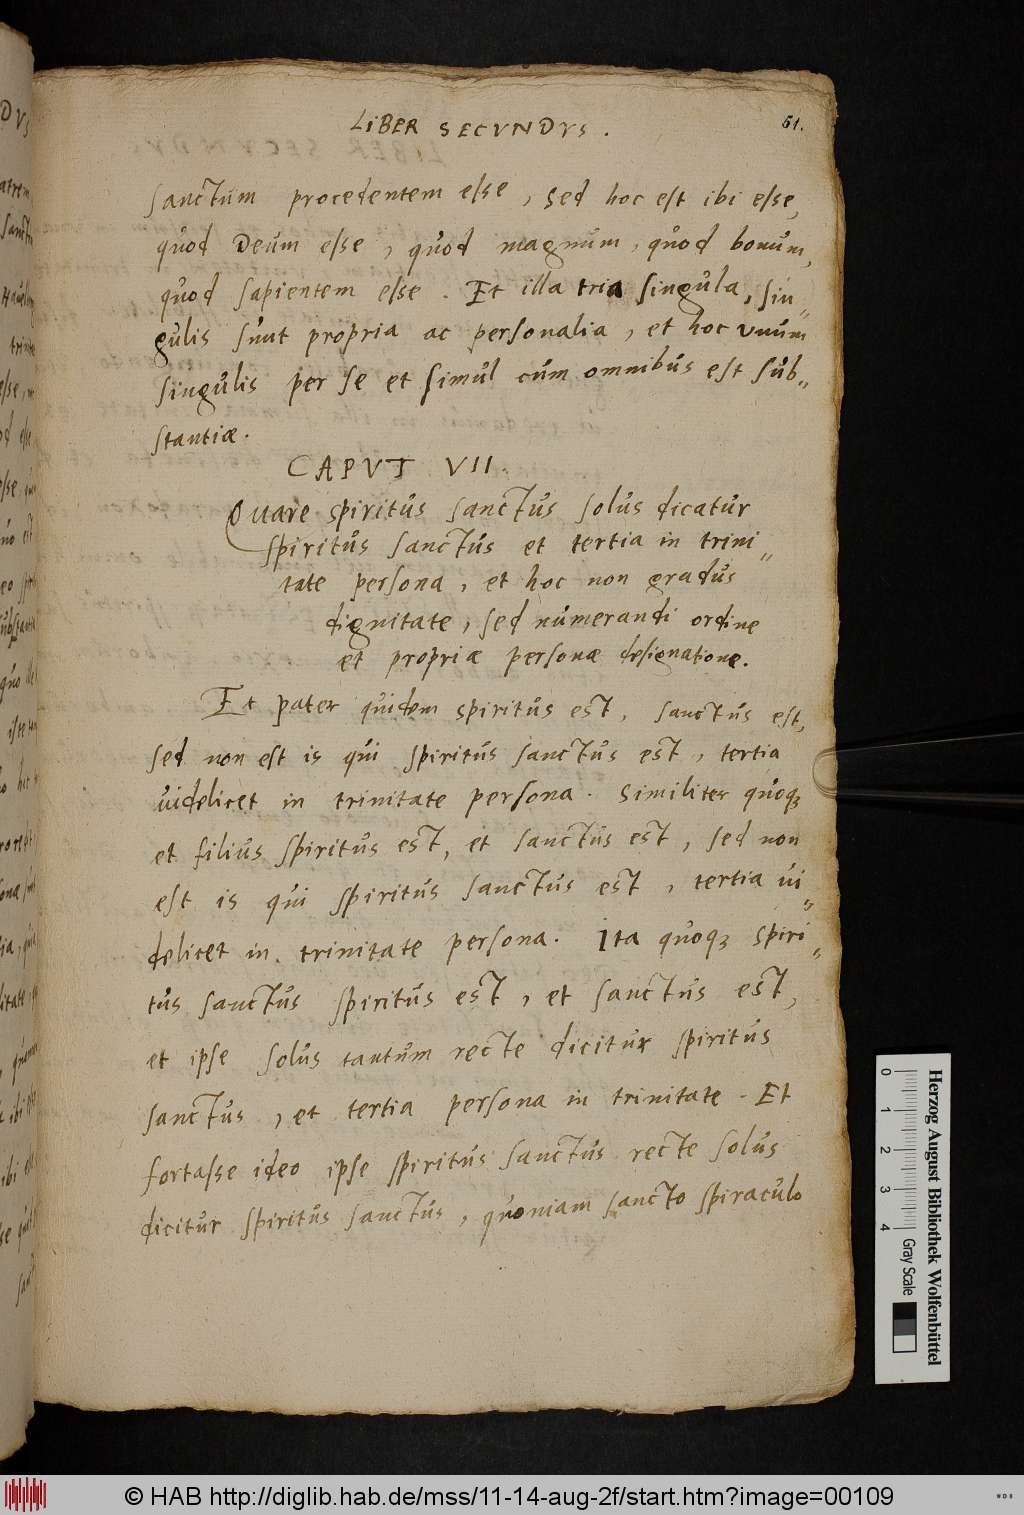 LIBER SECVNDVS.
51.
sanctum procedentem esse, sed hoc est ibi esse,
quod Deum esse, quod magnum, quod bonum,
quod sapientem esse. Et illa tria singula, sin„
gulis sunt propria ac personalia, et hoc unum
singulis per se et simul cum omnibus est sub„
stantiæ.
CAPVT VII.
Quare spiritus sanctus solus dicatur
spiritus sanctus et tertia in trini„
tate persona, et hoc non gradus
dignitate, sed numerandi ordine
et propriæ personæ designatione.
Et pater quidem spiritus est, sanctus est,
sed non est is qui spiritus sanctus est, tertia
uidelicet in trinitate persona. Similiter quoqȝ
et filius spiritus est, et sanctus est, sed non
est is qui spiritus sanctus est, tertia ui„
delicet in trinitate persona. Ita quoqȝ spiri„
tus sanctus spiritus est, et sanctus est,
et ipse solus tantum recte dicitur spiritus
sanctus, et tertia persona in trinitate. Et
fortasse ideo ipse spiritus sanctus recte solus
dicitur spiritus sanctus, quoniam sancto spiraculo
0 1 2 3 4
Gray Scale
Herzog August Bibliothek Wolfenbüttel
© HAB http://diglib.hab.de/mss/11-14-aug-2f/start.htm?image=00109